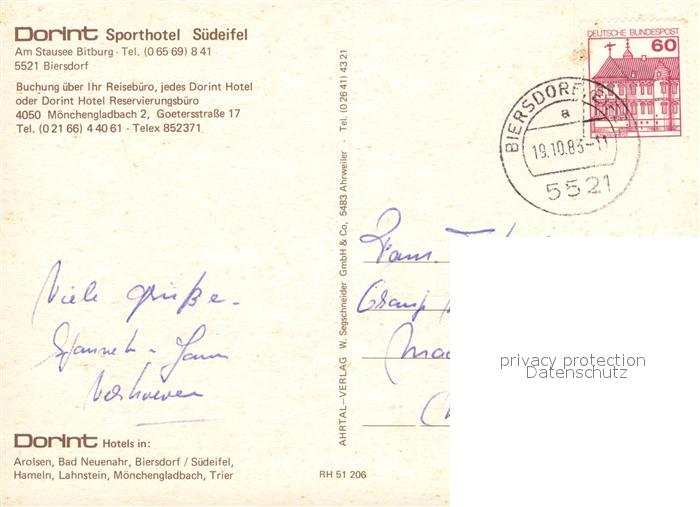 Dorint Sporthotel Südeifel
Am Stausee Bitburg · Tel. (0 65 69) 8 41
5521 Biersdorf
Buchung über Ihr Reisebüro, jedes Dorint Hotel
oder Dorint Hotel Reservierungsbüro
4050 Mönchengladbach 2, Goetersstraße 17
Tel. (0 21 66) 4 40 61 - Telex 852371
Viele Grüße
Dorint Hotels in:
Arolsen, Bad Neuenahr, Biersdorf / Südeifel,
Hameln, Lahnstein, Mönchengladbach, Trier
AHRTAL-VERLAG W. Segschneider GmbH & Co, 5483 Ahrweiler · Tel. (0 26 41) 43 21
RH 51 206
DEUTSCHE BUNDESPOST
60
BIERSDORF
a
19.10.83-11
5521
Fam.
privacy protection
Datenschutz